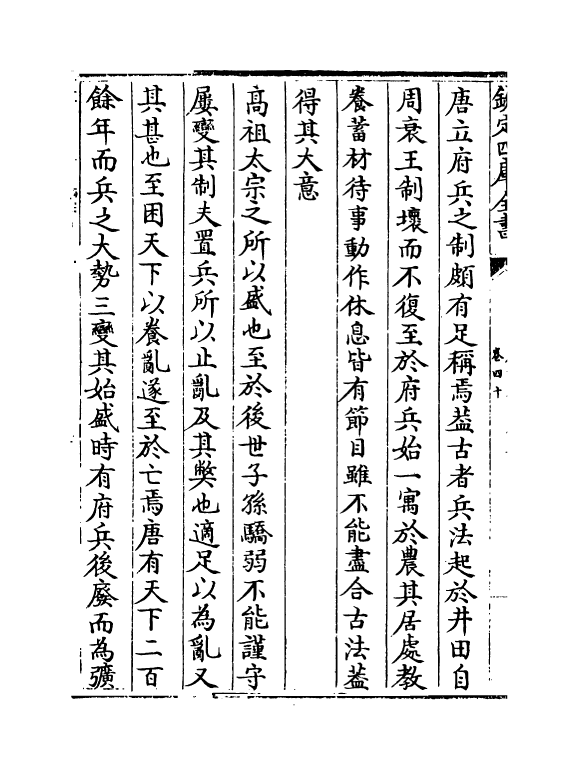 欽定四庫全書
卷四十
唐立府兵之制頗有足稱焉葢古者兵法起於井田自
周衰王制壞而不復至於府兵始一寓於農其居處教
養蓄材待事動作休息皆有節目雖不能盡合古法葢
得其大意
高祖太宗之所以盛也至於後世子孫驕弱不能謹守
屢變其制夫置兵所以止亂及其弊也適足以為亂又
其甚也至困天下以養亂遂至於亡焉唐有天下二百
餘年而兵之大勢三變其始盛時有府兵後廢而為彍